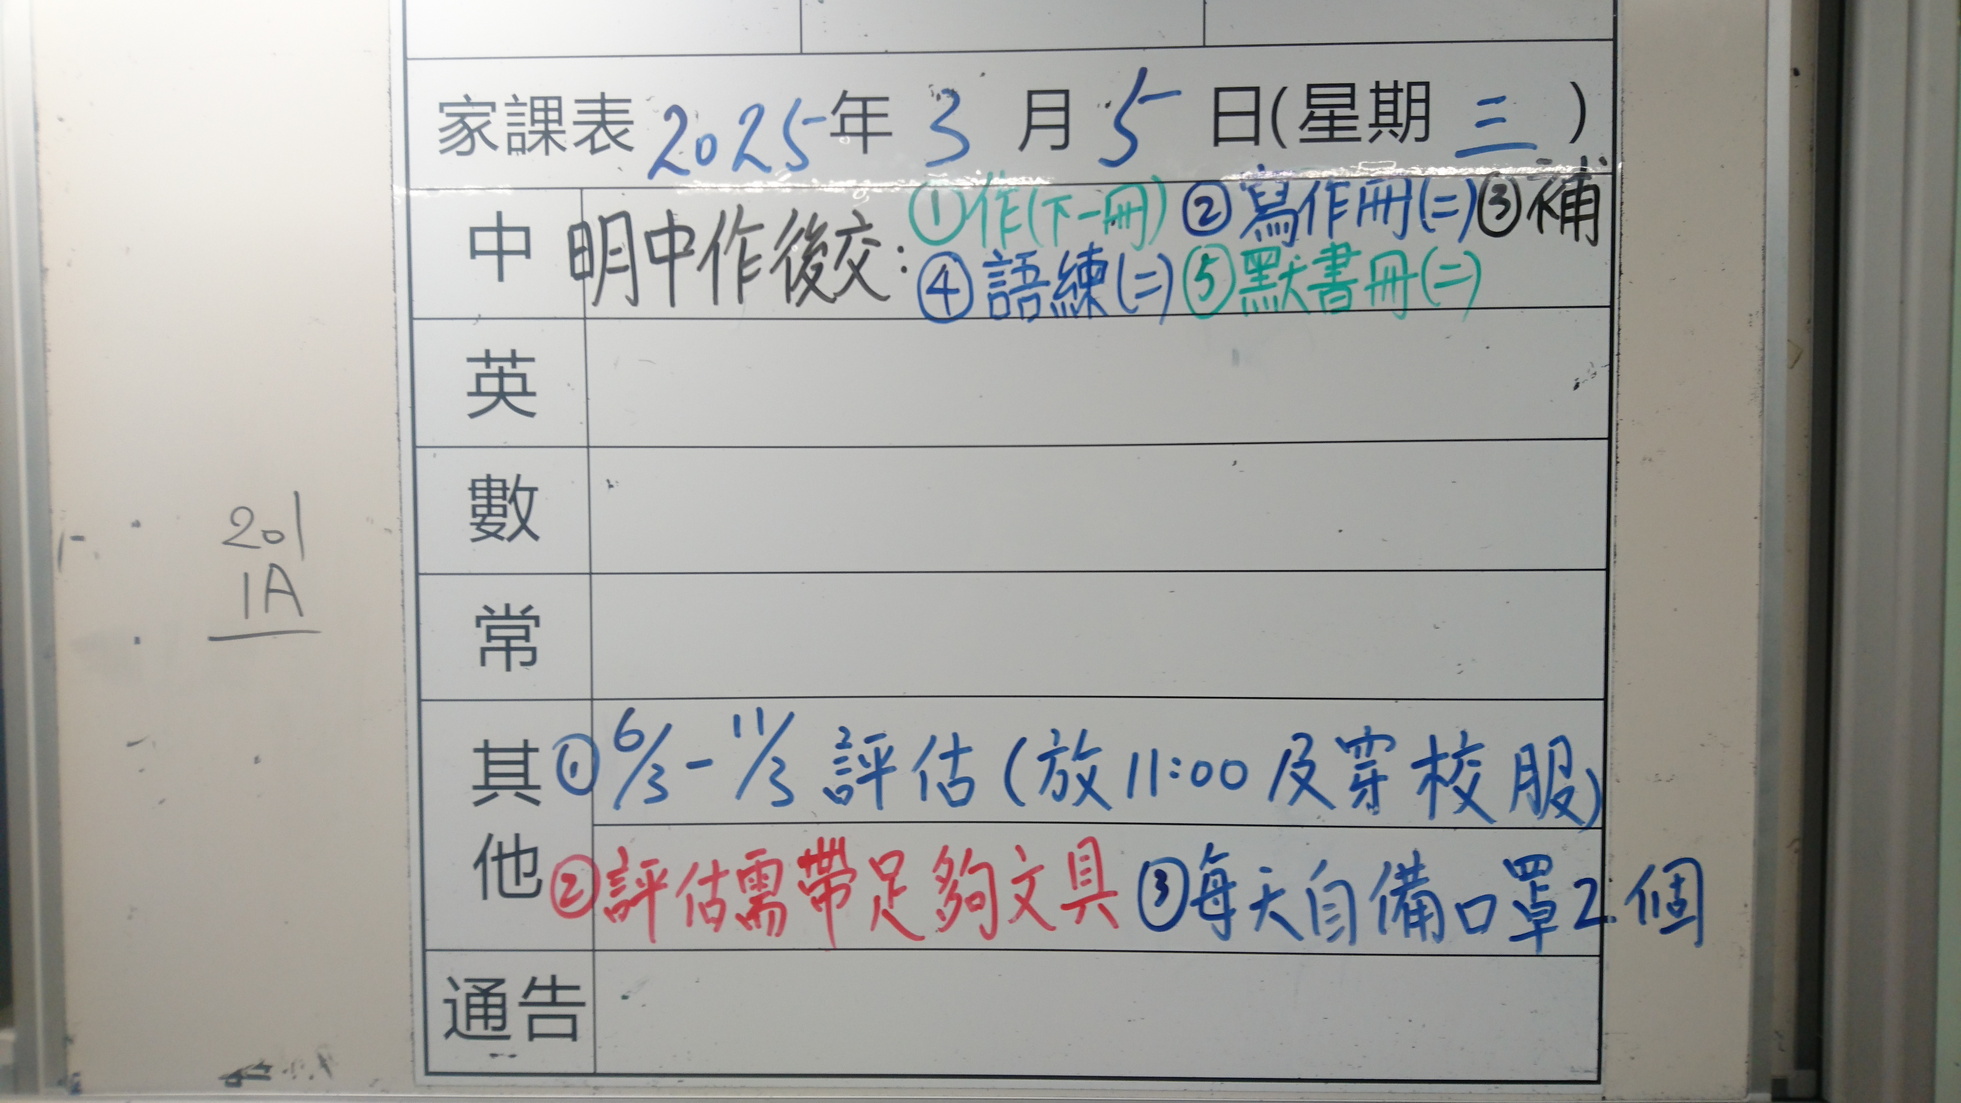 家課表 2025年 3 月 5 日(星期 三 )
中 明中作後交: ①作(下一冊) ②寫作冊(二) ③補
④語練(二) ⑤默書冊(二)
英
數
常
201
1A
其他 ①6/3-11/3 評估(放11:00及穿校服)
②評估需帶足夠文具 ③每天自備口罩2個
通告